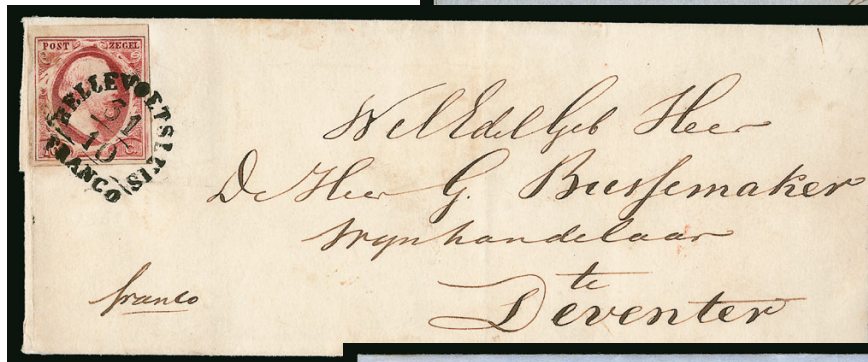 POST ZEGEL
HELLEVOETSLUIS
31
10
FRANCO
WelEdelGeb Heer
De Heer G. Bussemaker
Wynhandelaar
te
Deventer
franco